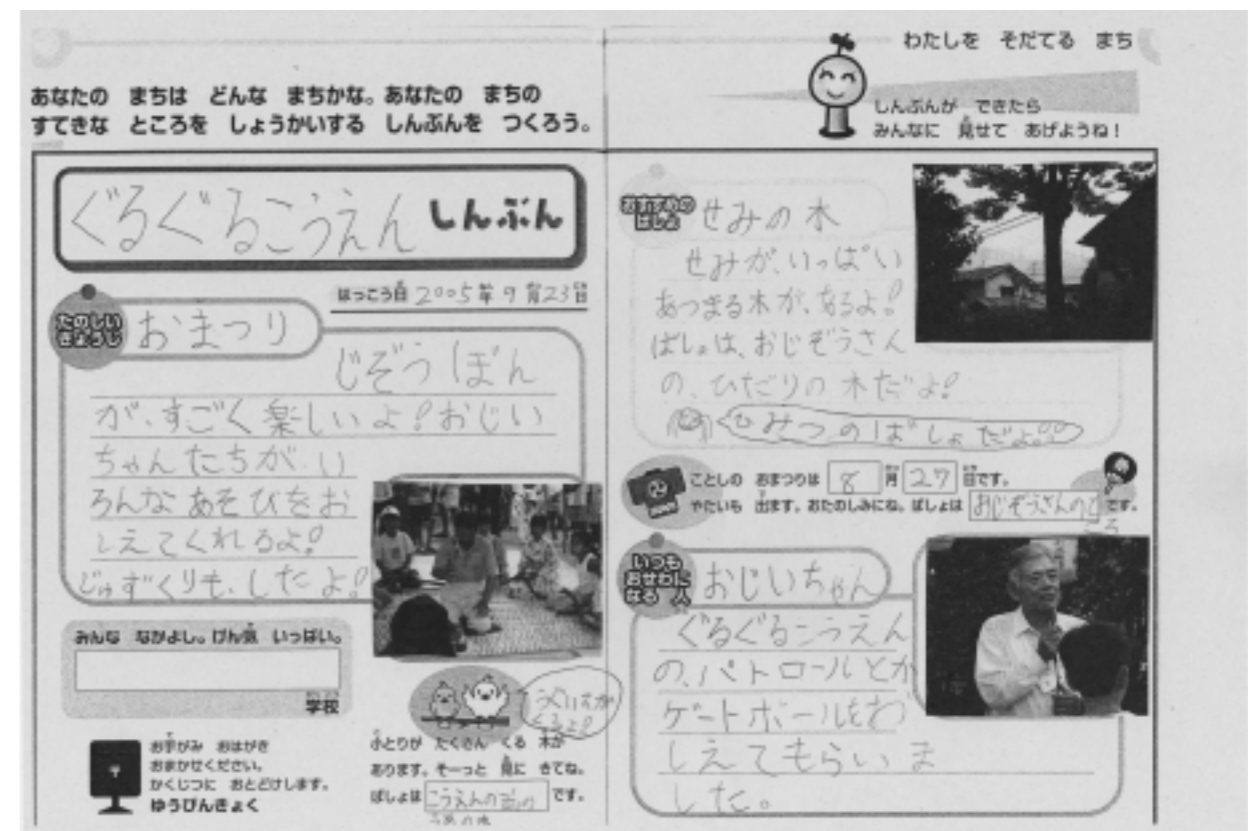 わたしを そだてる まち
あなたの まちは どんな まちかな。あなたの まちの
すてきな ところを しょうかいする しんぶんを つくろう。
しんぶんが できたら
みんなに 見せて あげようね！
ぐるぐるこうえん しんぶん
はっこう日 2005年9月23日
たのしい
ぎょうじ
おまつり
じぞうぼん
が、すごく楽しいよ！おじい
ちゃんたちが、い
ろんなあそびをお
しえてくれるよ！
じゅずくりも、したよ！
みんな なかよし。げん気 いっぱい。
学校
お手がみ おはがき
おまかせください。
かくじつに おとどけします。
ゆうびんきょく
うぐいすが
くるよ！
小とりが たくさん くる 木が
あります。そーっと 見に きてね。
ばしょは こうえんの です。
うめの木
おすすめの
ばしょ
せみの木
せみが、いっぱい
あつまる木が、あるよ！
ばしょは、おじぞうさん
の、ひだりの木だよ！
ひみつのばしょだよ!!
ことしの おまつりは 8月27日です。
やたいも 出ます。おたのしみにね。ばしょは おじぞうさんのと です。
ころ
いつも
おせわに
なる 人
おじいちゃん
ぐるぐるこうえん
の、パトロールとか
ゲートボールをお
しえてもらいま
した。